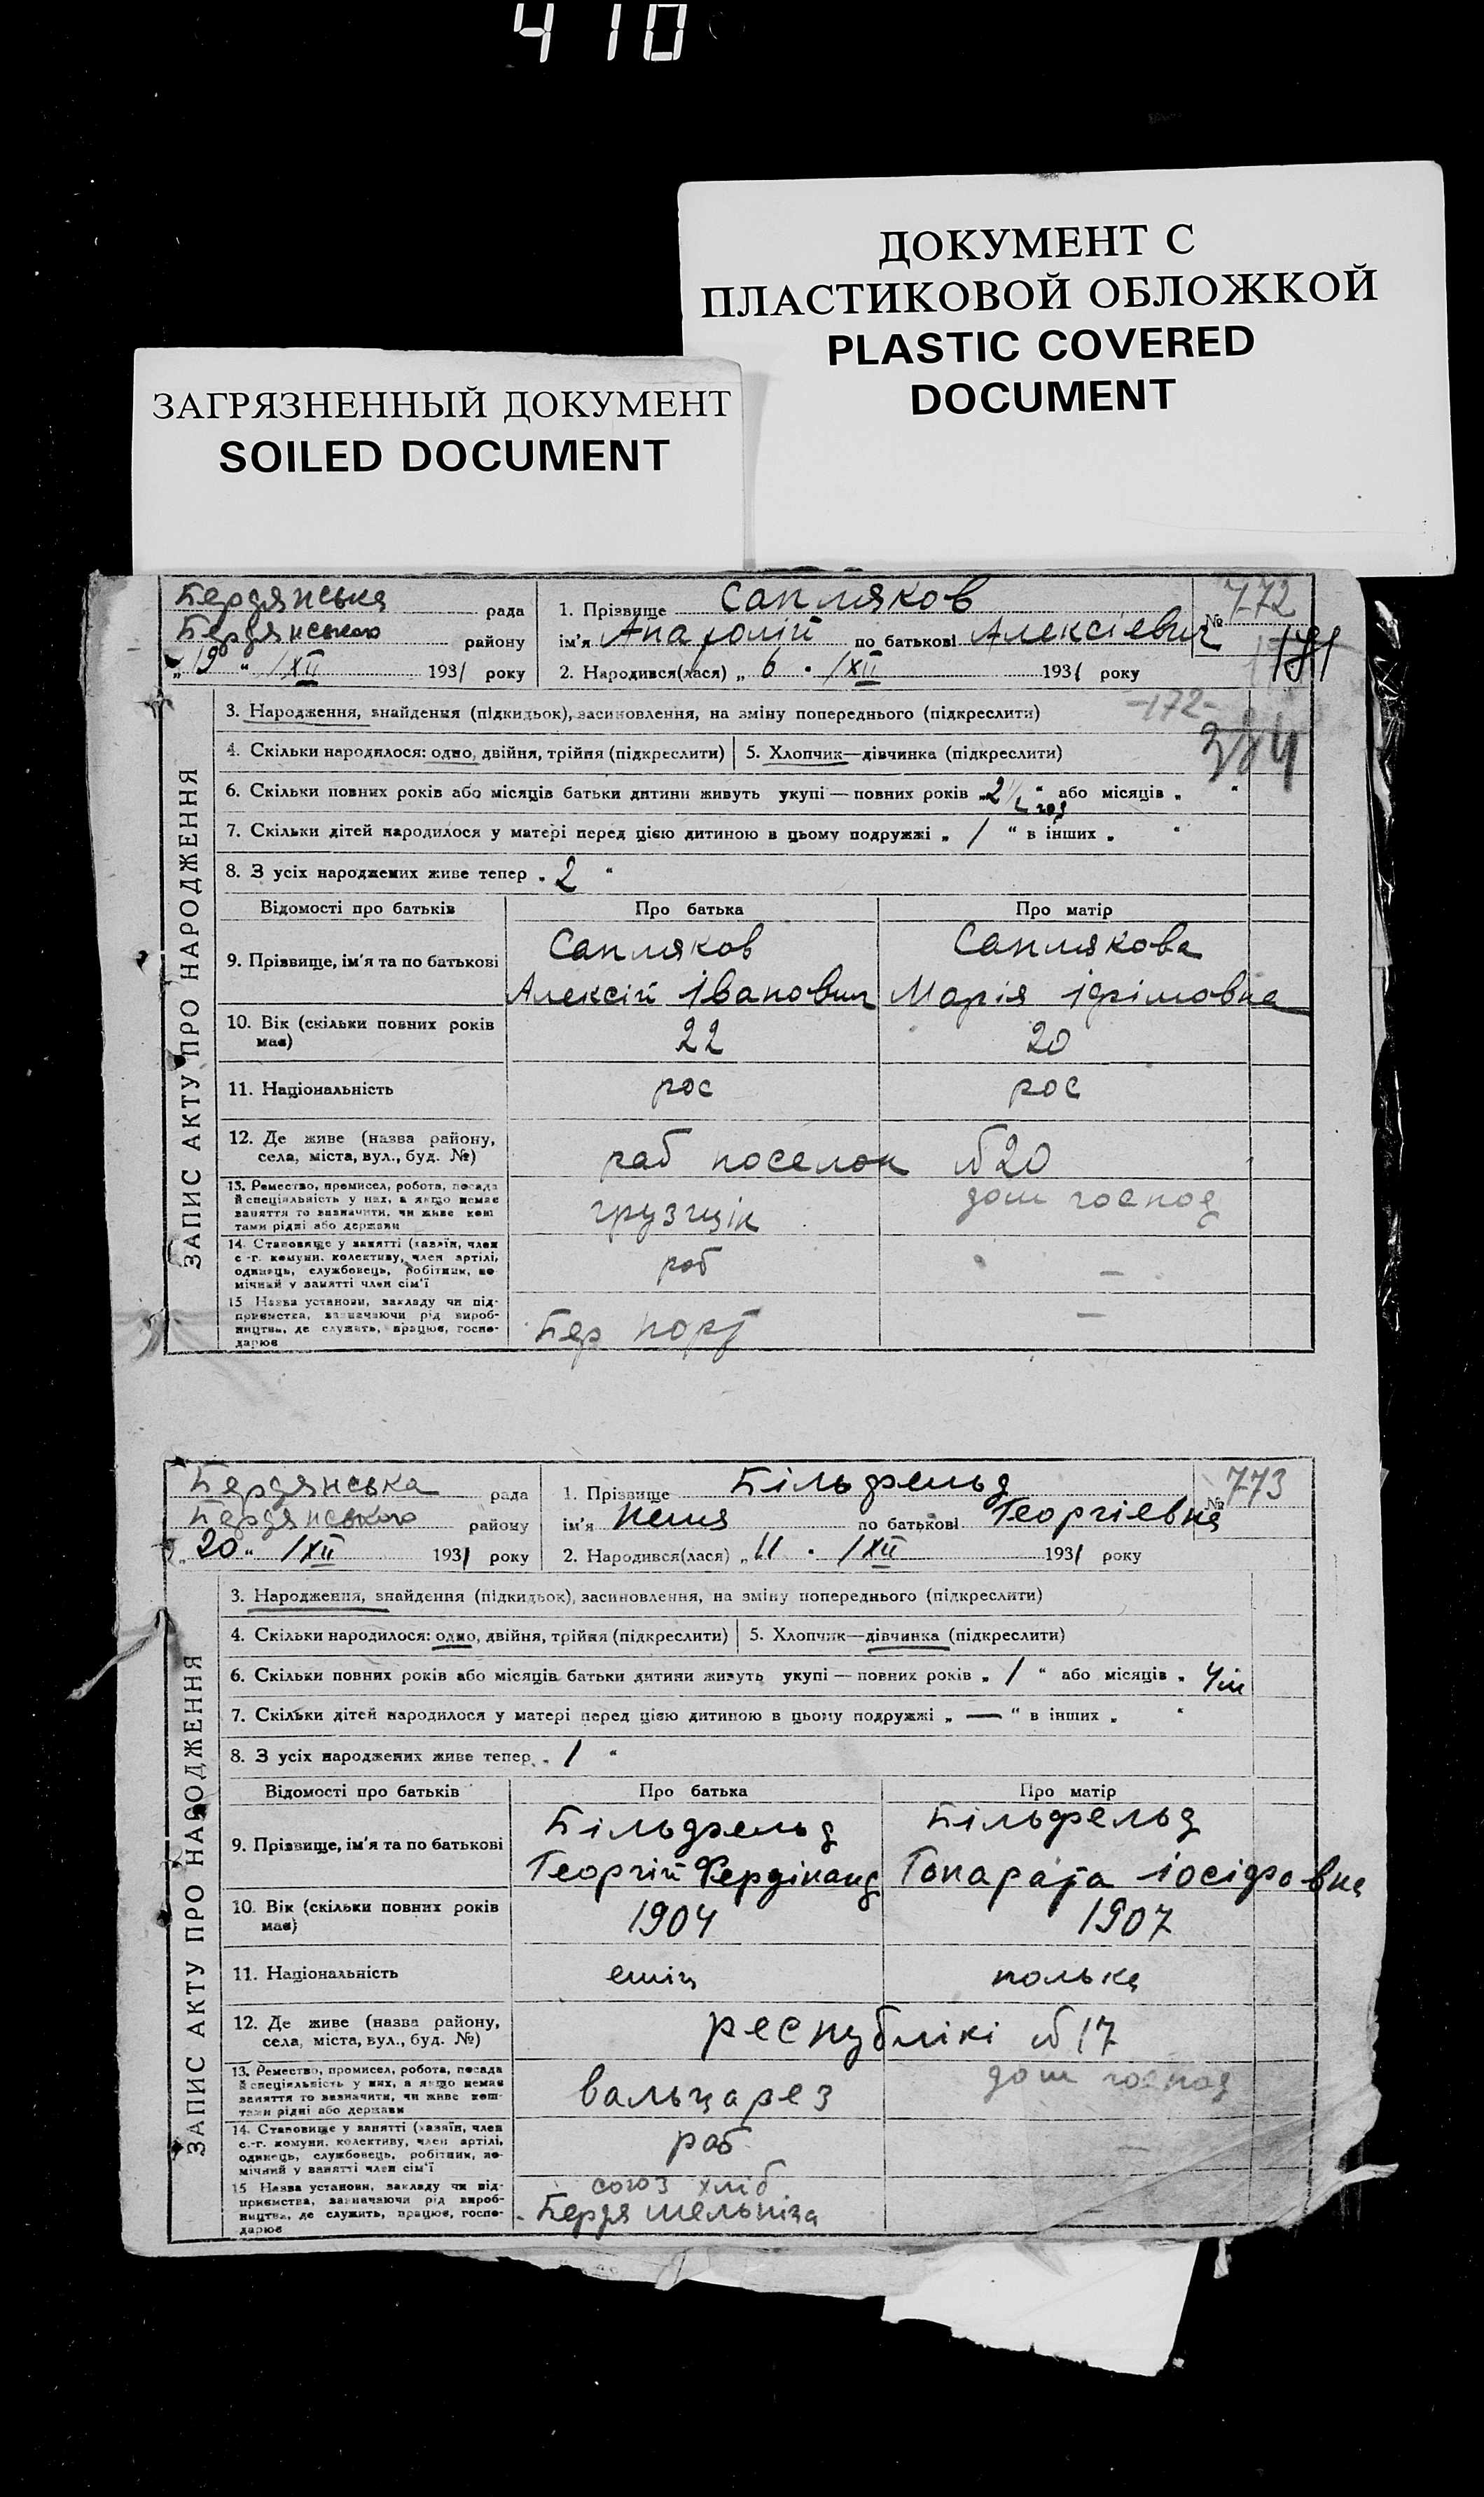 410
ДОКУМЕНТ С
ПЛАСТИКОВОЙ ОБЛОЖКОЙ
PLASTIC COVERED
DOCUMENT
ЗАГРЯЗНЕННЫЙ ДОКУМЕНТ
SOILED DOCUMENT
Бердянська рада
Бердянського району
„19“ /XII 1931 року
1. Прізвище Сапляков
ім'я Анатолій по батькові Алексієвич
2. Народився(лася) „6“ /XII 1931 року
№ 772
3. Народження, знайдення (підкидьок), засиновлення, на зміну попереднього (підкреслити)
-172-
4. Скільки народилося: одно, двійня, трійня (підкреслити) 5. Хлопчик—дівчинка (підкреслити)
6. Скільки повних років або місяців батьки дитини живуть укупі — повних років „2 1/2 год“ або місяців „ “
7. Скільки дітей народилося у матері перед цією дитиною в цьому подружжі „ / “ в інших „ “
8. З усіх народжених живе тепер „2“
ЗАПИС АКТУ ПРО НАРОДЖЕННЯ
Відомості про батьків Про батька Про матір
9. Прізвище, ім'я та по батькові
Сапляков
Алексій Іванович
Саплякова
Марія Іфімовна
10. Вік (скільки повних років має) 22 20
11. Національність рос рос
12. Де живе (назва району, села, міста, вул., буд. №)
раб поселок №20
13. Ремество, промисел, робота, посада й спеціяльність у них, а якщо немає заняття то зазначити, чи живе коштами рідні або держави
грузщік дом господ
14. Становище у занятті (хазяїн, член с.-г. комуни, колективу, член артілі, одинець, службовець, робітник, помічний у занятті член сім'ї
раб —
15 Назва установи, закладу чи підприємства, зазначаючи рід виробництва, де служить, працює, господарює
Бер порт —
Бердянська рада
Бердянського району
„20“ /XII 1931 року
1. Прізвище Більфельд
ім'я Неля по батькові Георгіевна
2. Народився(лася) „11“ /XII 1931 року
№ 773
3. Народження, знайдення (підкидьок), засиновлення, на зміну попереднього (підкреслити)
4. Скільки народилося: одно, двійня, трійня (підкреслити) 5. Хлопчик—дівчинка (підкреслити)
6. Скільки повних років або місяців батьки дитини живуть укупі — повних років „ / “ або місяців „ 4м
7. Скільки дітей народилося у матері перед цією дитиною в цьому подружжі „ — “ в інших „ “
8. З усіх народжених живе тепер „ / “
ЗАПИС АКТУ ПРО НАРОДЖЕННЯ
Відомості про батьків Про батька Про матір
9. Прізвище, ім'я та по батькові
Більфельд
Георгій Фердінанд
Більфельд
Іосіфовна
10. Вік (скільки повних років має) 1904 1907
11. Національність полька
12. Де живе (назва району, села, міста, вул., буд. №)
республікі №17
13. Ремество, промисел, робота, посада й спеціяльність у них, а якщо немає заняття то зазначити, чи живе коштами рідні або держави
вальцарез дом господ
14. Становище у занятті (хазяїн, член с.-г. комуни, колективу, член артілі, одинець, службовець, робітник, помічний у занятті член сім'ї
раб
15 Назва установи, закладу чи підприємства, зазначаючи рід виробництва, де служить, працює, господарює
союз хліб
Бердя мельніза